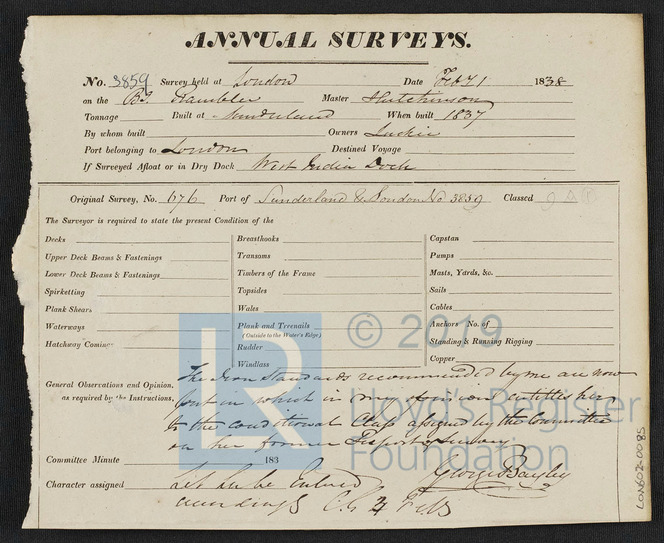 ANNUAL SURVEYS.
No. 3859 Survey held at London Date Feby 1 1838
on the Bg Rambler Master Hutchinson
Tonnage Built at Sunderland When built 1837
By whom built Owners Luckie
Port belonging to London Destined Voyage
If Surveyed Afloat or in Dry Dock West India Dock
Original Survey, No. 676 Port of Sunderland & London No 3859 Classed
The Surveyor is required to state the present Condition of the
Decks
Upper Deck Beams & Fastenings
Lower Deck Beams & Fastenings
Spirketting
Plank Shears
Waterways
Hatchway Comings
Breasthooks
Transoms
Timbers of the Frame
Topsides
Wales
Plank and Treenails
(Outside to the Water's Edge)
Rudder
Windlass
Capstan
Pumps
Masts, Yards, &c.
Sails
Cables
Anchors No. of
Standing & Running Rigging
Copper
General Observations and Opinion,
as required by the Instructions,
The Iron Standards recommended by me are now
put in which in my opinion entitles her
to the conditional Class assigned by the Committee
on her former Report of survey
Committee Minute 183
George Bayley
Character assigned Let her be Entered
accordingly
LON602-0085
LR
© 2019
Lloyd's Register
Foundation